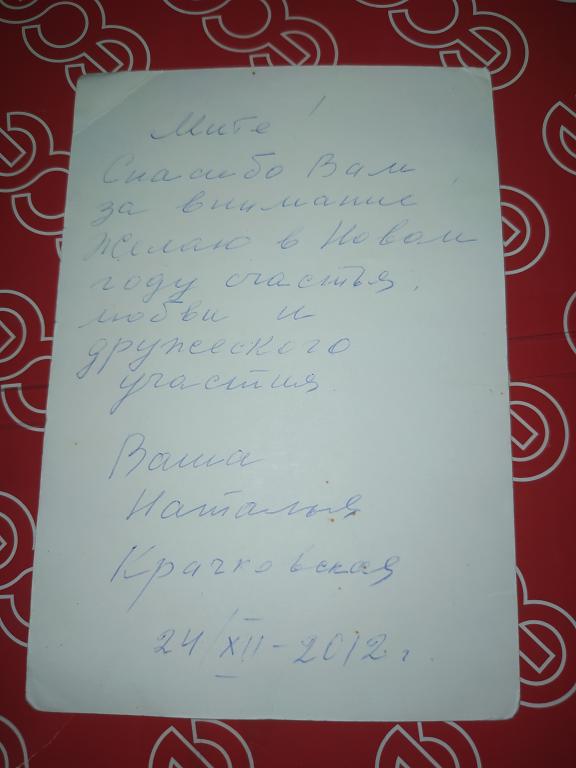 Мите!
Спасибо Вам
за внимание,
желаю в Новом
году счастья,
любви и
дружеского
участия.
Ваша
Наталья
Крачковская
24/XII-2012 г.